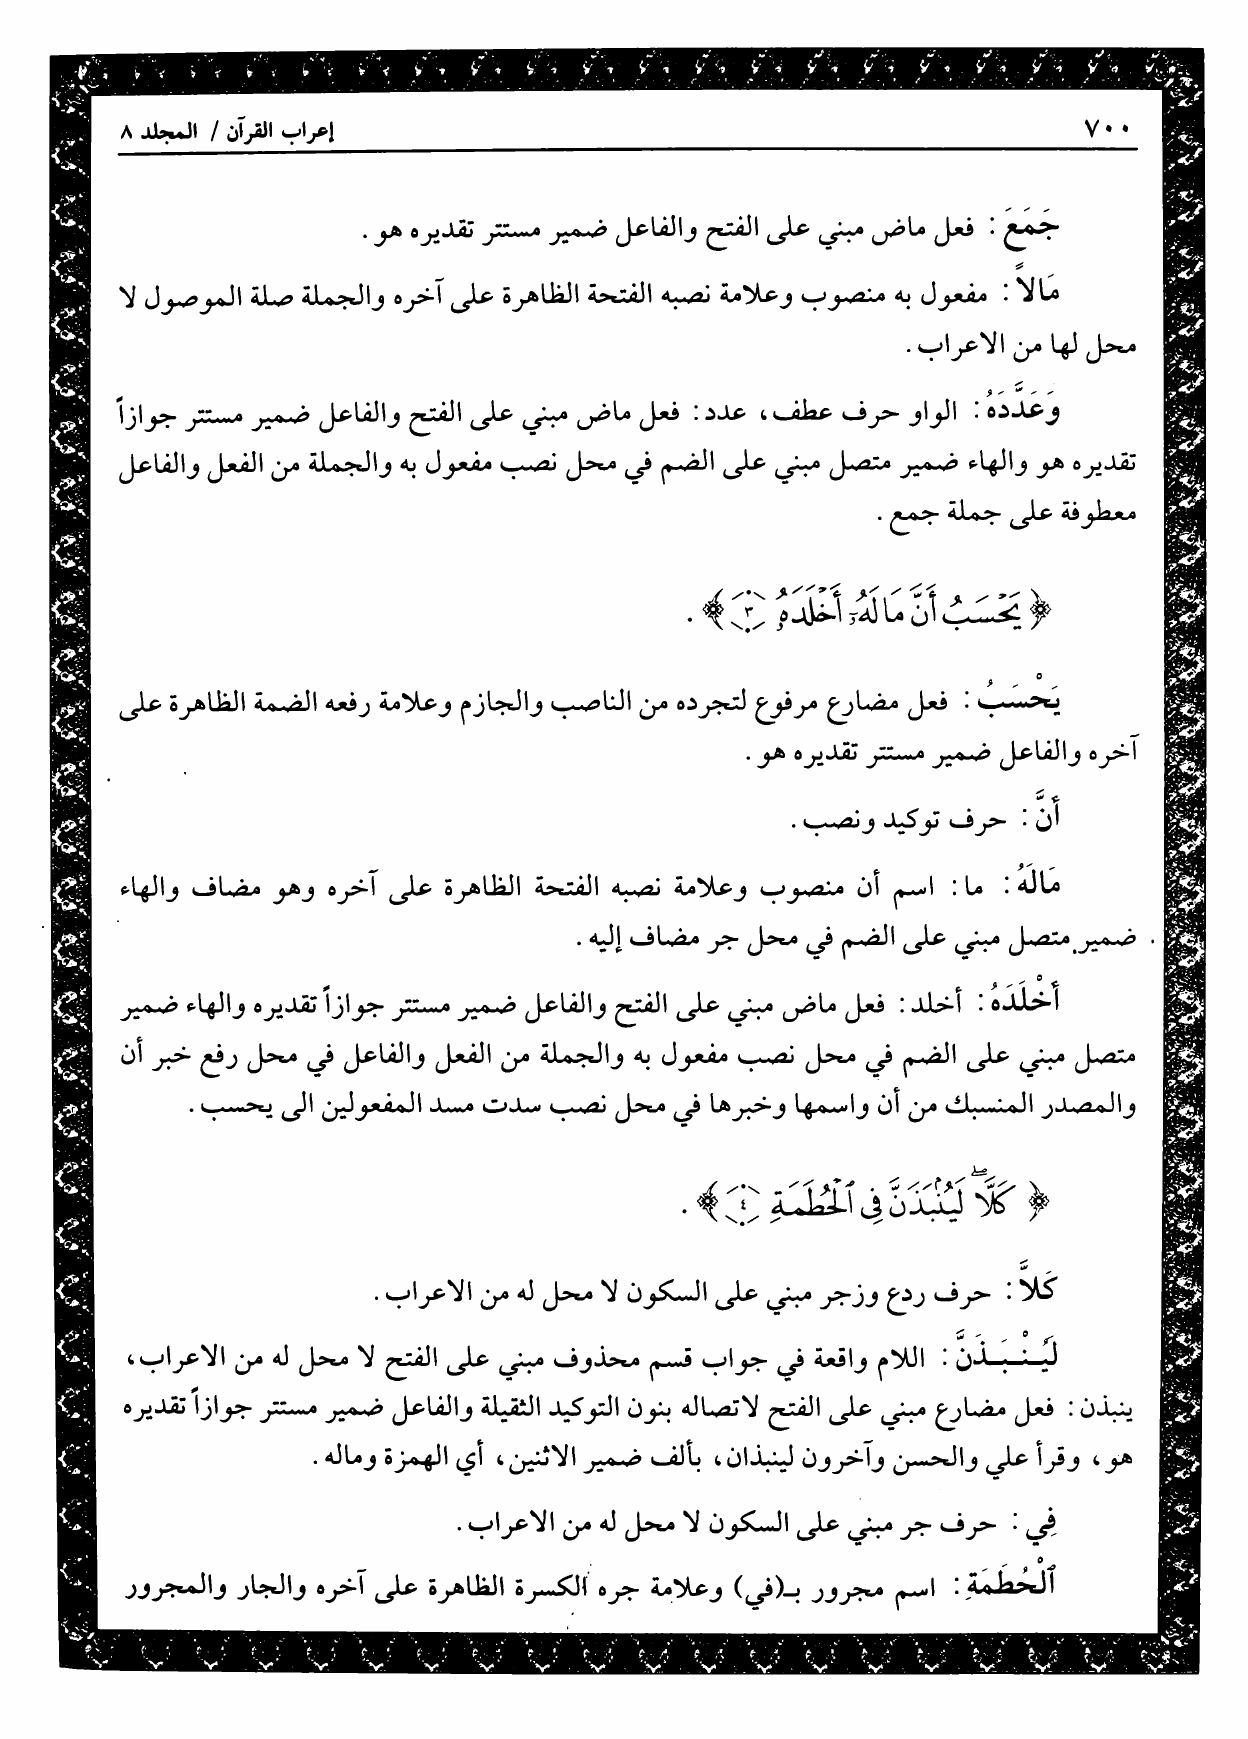 ٧٠٠
إعراب القرآن / المجلد ٨
جَمَعَ : فعل ماض مبني على الفتح والفاعل ضمير مستتر تقديره هو .
مَالاً : مفعول به منصوب وعلامة نصبه الفتحة الظاهرة على آخره والجملة صلة الموصول لا
محل لها من الاعراب .
وَعَدَّدَهُ : الواو حرف عطف، عدد : فعل ماض مبني على الفتح والفاعل ضمير مستتر جوازاً
تقديره هو والهاء ضمير متصل مبني على الضم في محل نصب مفعول به والجملة من الفعل والفاعل
معطوفة على جملة جمع .
﴿ يَحْسَبُ أَنَّ مَالَهُۥٓ أَخْلَدَهُۥ ٣ ﴾ .
يَحْسَبُ : فعل مضارع مرفوع لتجرده من الناصب والجازم وعلامة رفعه الضمة الظاهرة على
آخره والفاعل ضمير مستتر تقديره هو .
أَنَّ : حرف توكيد ونصب .
مَالَهُ : ما : اسم أن منصوب وعلامة نصبه الفتحة الظاهرة على آخره وهو مضاف والهاء
ضمير متصل مبني على الضم في محل جر مضاف إليه .
أَخْلَدَهُ : أخلد : فعل ماض مبني على الفتح والفاعل ضمير مستتر جوازاً تقديره والهاء ضمير
متصل مبني على الضم في محل نصب مفعول به والجملة من الفعل والفاعل في محل رفع خبر أن
والمصدر المنسبك من أن واسمها وخبرها في محل نصب سدت مسد المفعولين الى يحسب .
﴿ كَلَّا ۖ لَيُنۢبَذَنَّ فِى ٱلْحُطَمَةِ ٤ ﴾ .
كَلاَّ : حرف ردع وزجر مبني على السكون لا محل له من الاعراب .
لَيُـنْـبَـذَنَّ : اللام واقعة في جواب قسم محذوف مبني على الفتح لا محل له من الاعراب،
ينبذن : فعل مضارع مبني على الفتح لاتصاله بنون التوكيد الثقيلة والفاعل ضمير مستتر جوازاً تقديره
هو ، وقرأ علي والحسن وآخرون لينبذان، بألف ضمير الاثنين، أي الهمزة وماله .
فِي : حرف جر مبني على السكون لا محل له من الاعراب .
ٱلْحُطَمَةِ : اسم مجرور بـ(في) وعلامة جره الكسرة الظاهرة على آخره والجار والمجرور